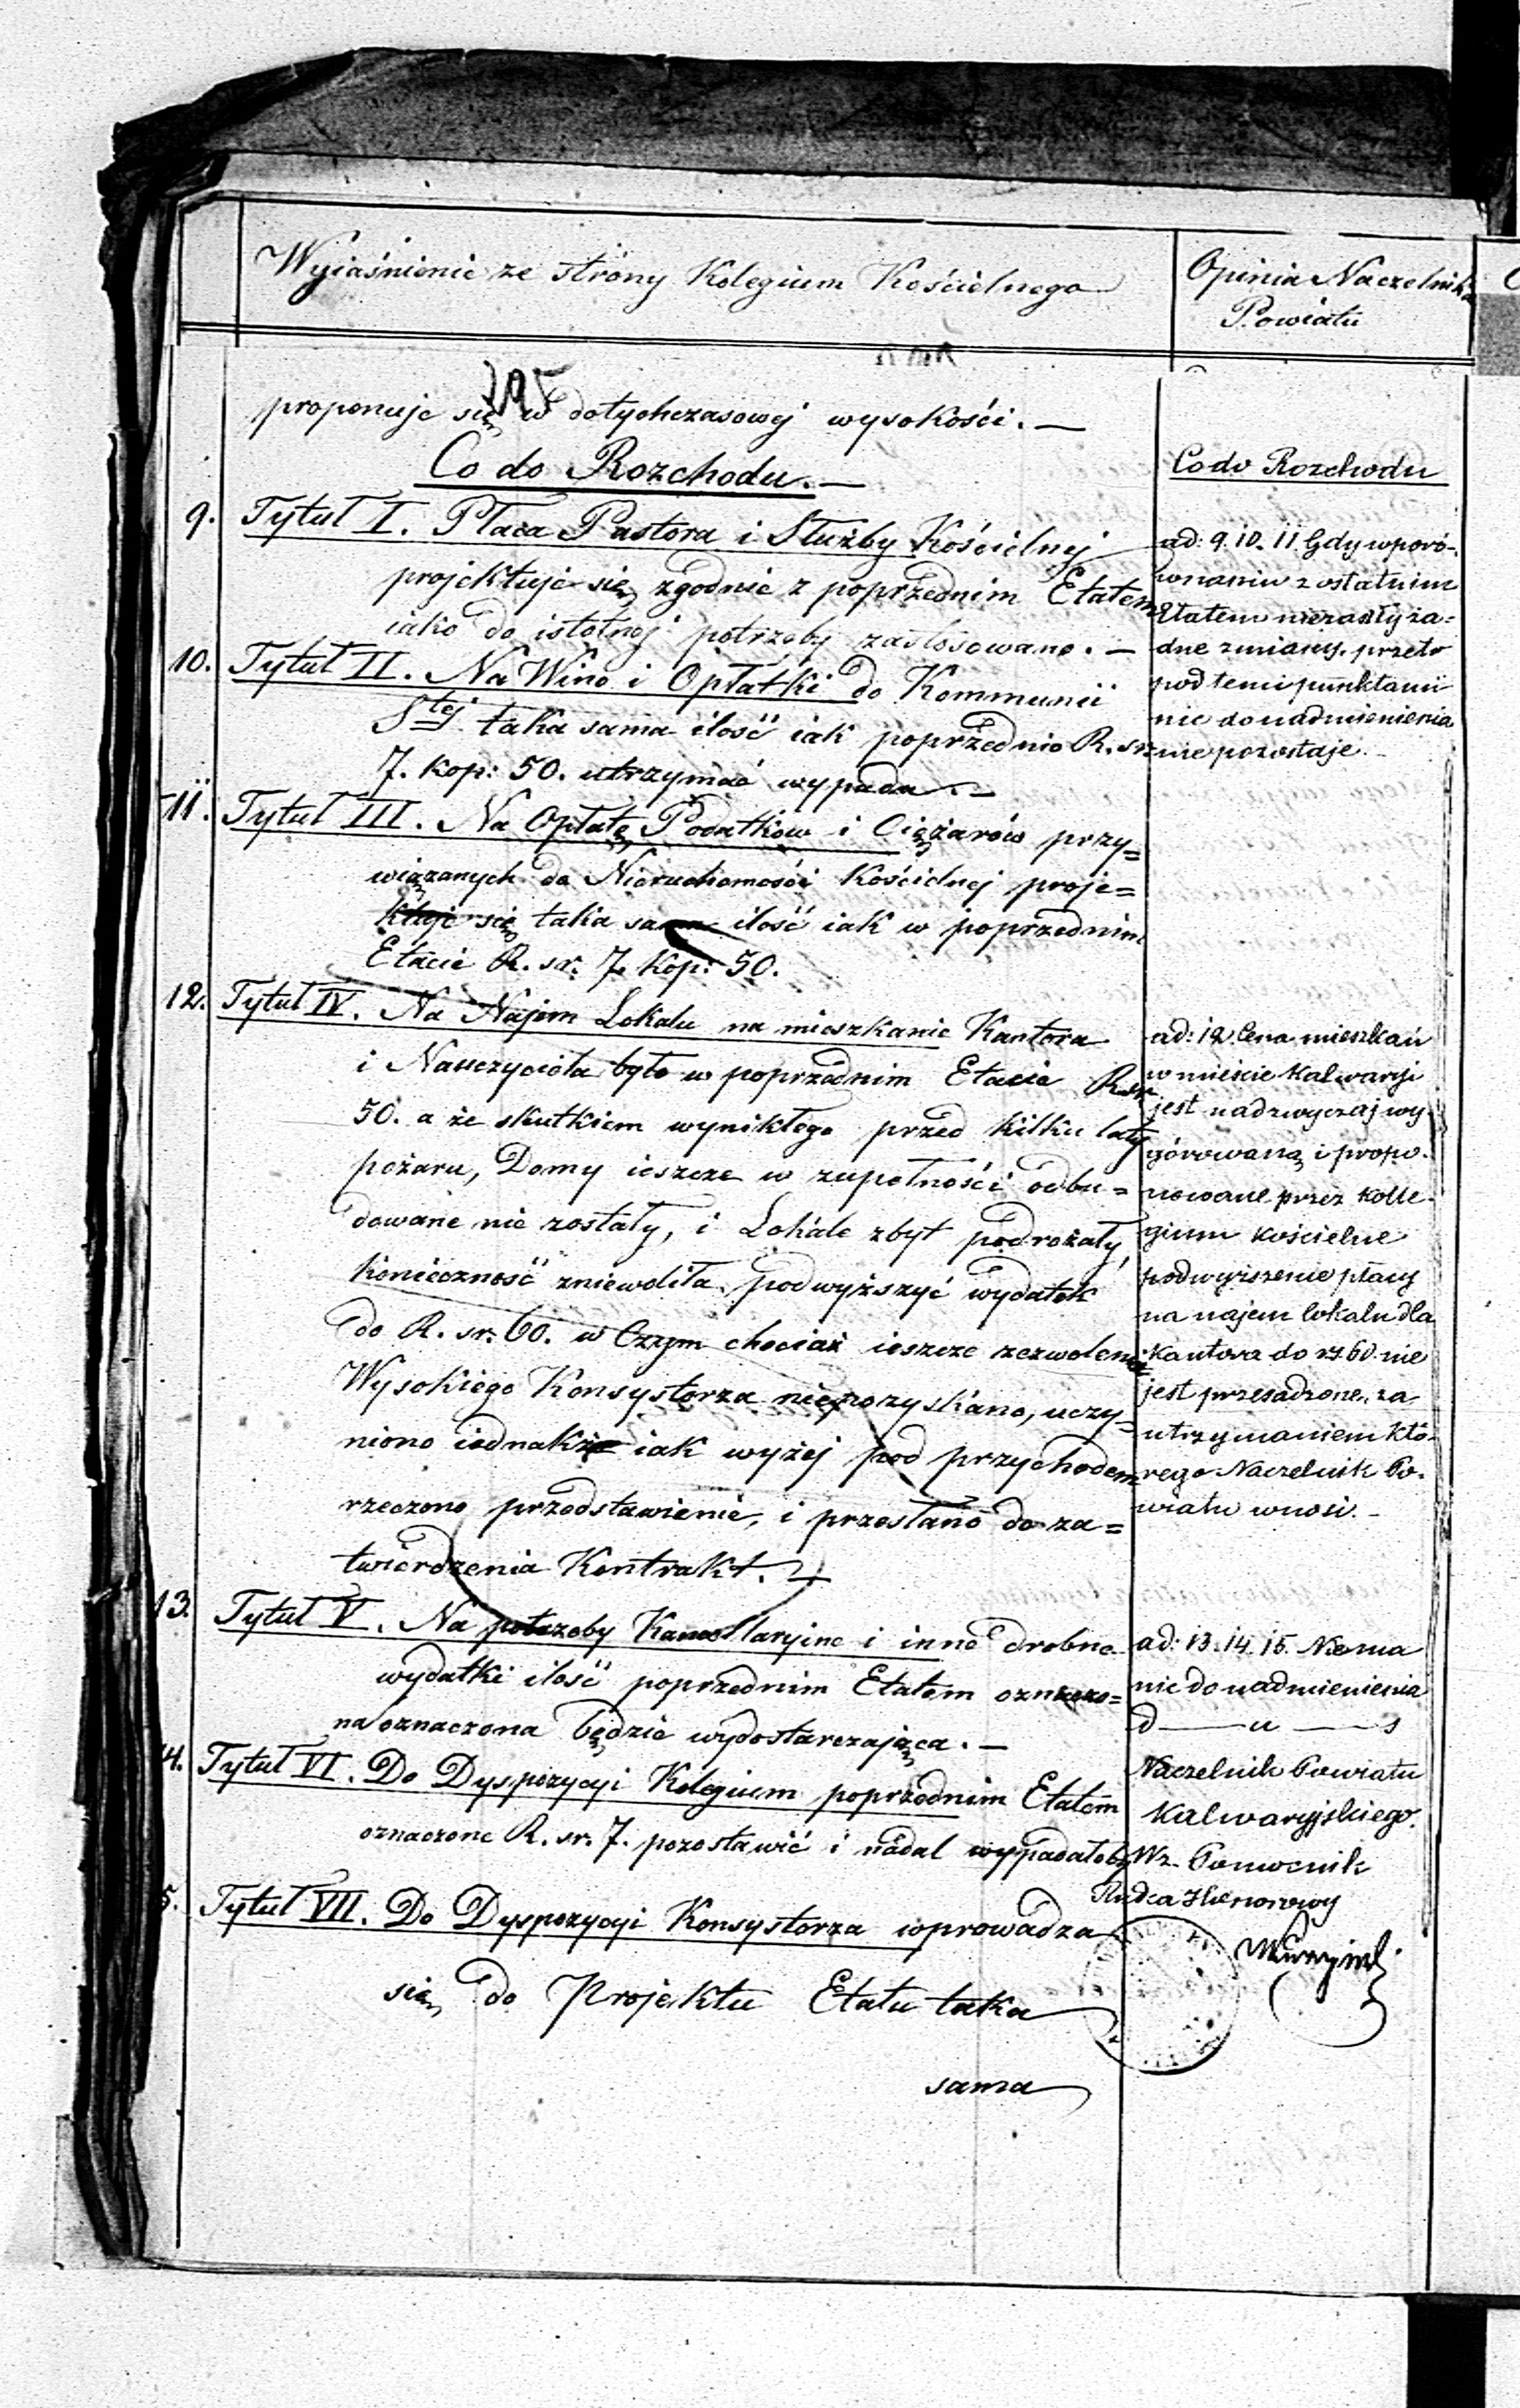 Wyiaśnienie ze strony Kolegium Kościelnego
Opinia Naczelnika
Powiatu
proponuje się w dotychczasowej wysokości. —
Co do Rozchodu. —
9. Tytuł I. Płaca Pastora i Służby Kościelnej
projektuje się zgodnie z poprzednim Etatem
iako do istotnej potrzeby zastosowane. —
10. Tytuł II. Na Wino i Opłatki do Kommunii
Stej taka sama ilość iak poprzednio R. sr.
7. kop: 50. utrzymać wypada. —
11. Tytuł III. Na Opłatę Podatków i Ciężarów przy=
wiązanych do Nieruchomości Kościelnej proje=
ktuje się taka sama ilość iak w poprzednim
Etacie R. sr. 7. kop: 50.
12. Tytuł IV. Na Najem Lokalu na mieszkanie Kantora
i Nauczyciela było w poprzednim Etacie R. sr.
50. a że skutkiem wynikłego przed kilku laty
pożaru, Domy ieszcze w zupełności odbu=
dowane nie zostały, i Lokale zbyt podrożały,
konieczność zniewoliła podwyższyć wydatek
do R. sr. 60. w Czym chociaż ieszcze zezwolenie
Wysokiego Konsystorza niepozyskano, uczy=
niono iednakże iak wyżej pod przychodem
rzeczone przedstawienie, i przesłano do za=
twierdzenia Kontrakt. —
13. Tytuł V. Na potrzeby Kancellaryine i inne drobne
wydatki ilość poprzednim Etatem oznaczo=
na oznaczona będzie wydostarczająca. —
14. Tytuł VI. Do Dyspozycyi Kolegium poprzednim Etatem
oznaczone R. sr. 7. pozostawić i nadal wypadałoby
5. Tytuł VII. Do Dyspozycyi Konsystorza wprowadza
się do Projektu Etatu taka
sama
Co do Rozchodu
ad: 9. 10. 11. Gdy w poró-
wnaniu z ostatnim
Etatem niezaszły ża=
dne zmiany, przeto
pod temi punktami
nic do nadmienienia
nie pozostaje. –
ad: 12. Cena mieszkań
w mieście Kalwaryi
jest nadzwyczaj wy
górowaną i propo-
nowane przez Kolle-
gium kościelne
podwyższenie płacy
na najem lokalu dla
Kantora do rs. 60. nie
jest przesadzone, za
utrzymaniem któ-
rego Naczelnik Po-
wiatu wnosi. –
ad: 13. 14. 15. Niema
nic do nadmienienia
d — u — s
Naczelnik Powiatu
Kalwaryjskiego.
Wz. Pomocnik
Radca Honorowy